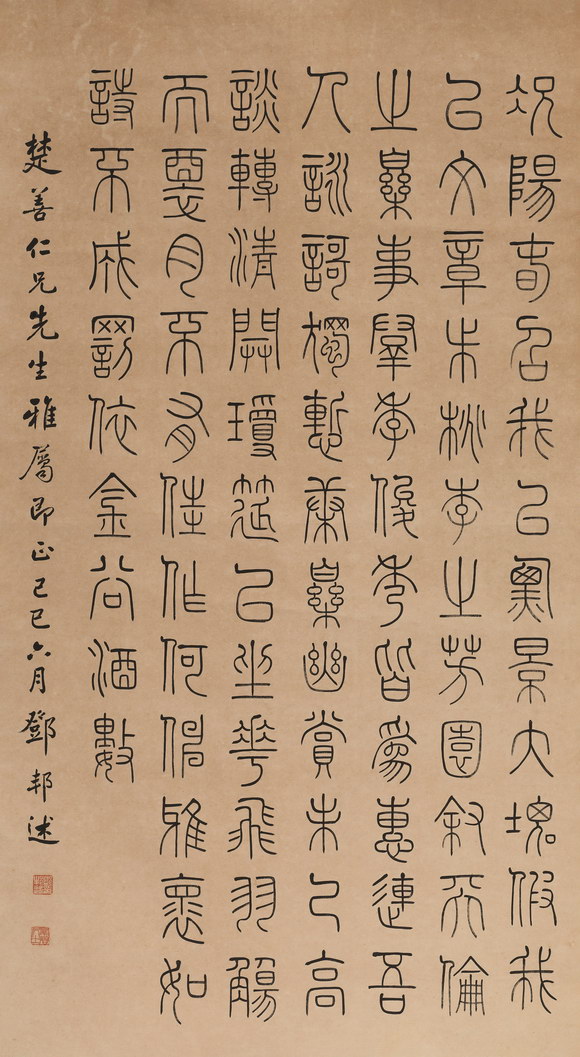 況陽春召我以煙景大塊假我
以文章桃李之芳園敘天倫
之樂事群季俊秀皆為惠連吾
人詠歌獨慚康樂幽賞未已高
談轉清開瓊筵以坐花飛羽觴
而月不有佳作何伸雅懷如
詩不成罰依金谷酒數
楚善仁兄先生雅屬即正己巳六月鄧邦述